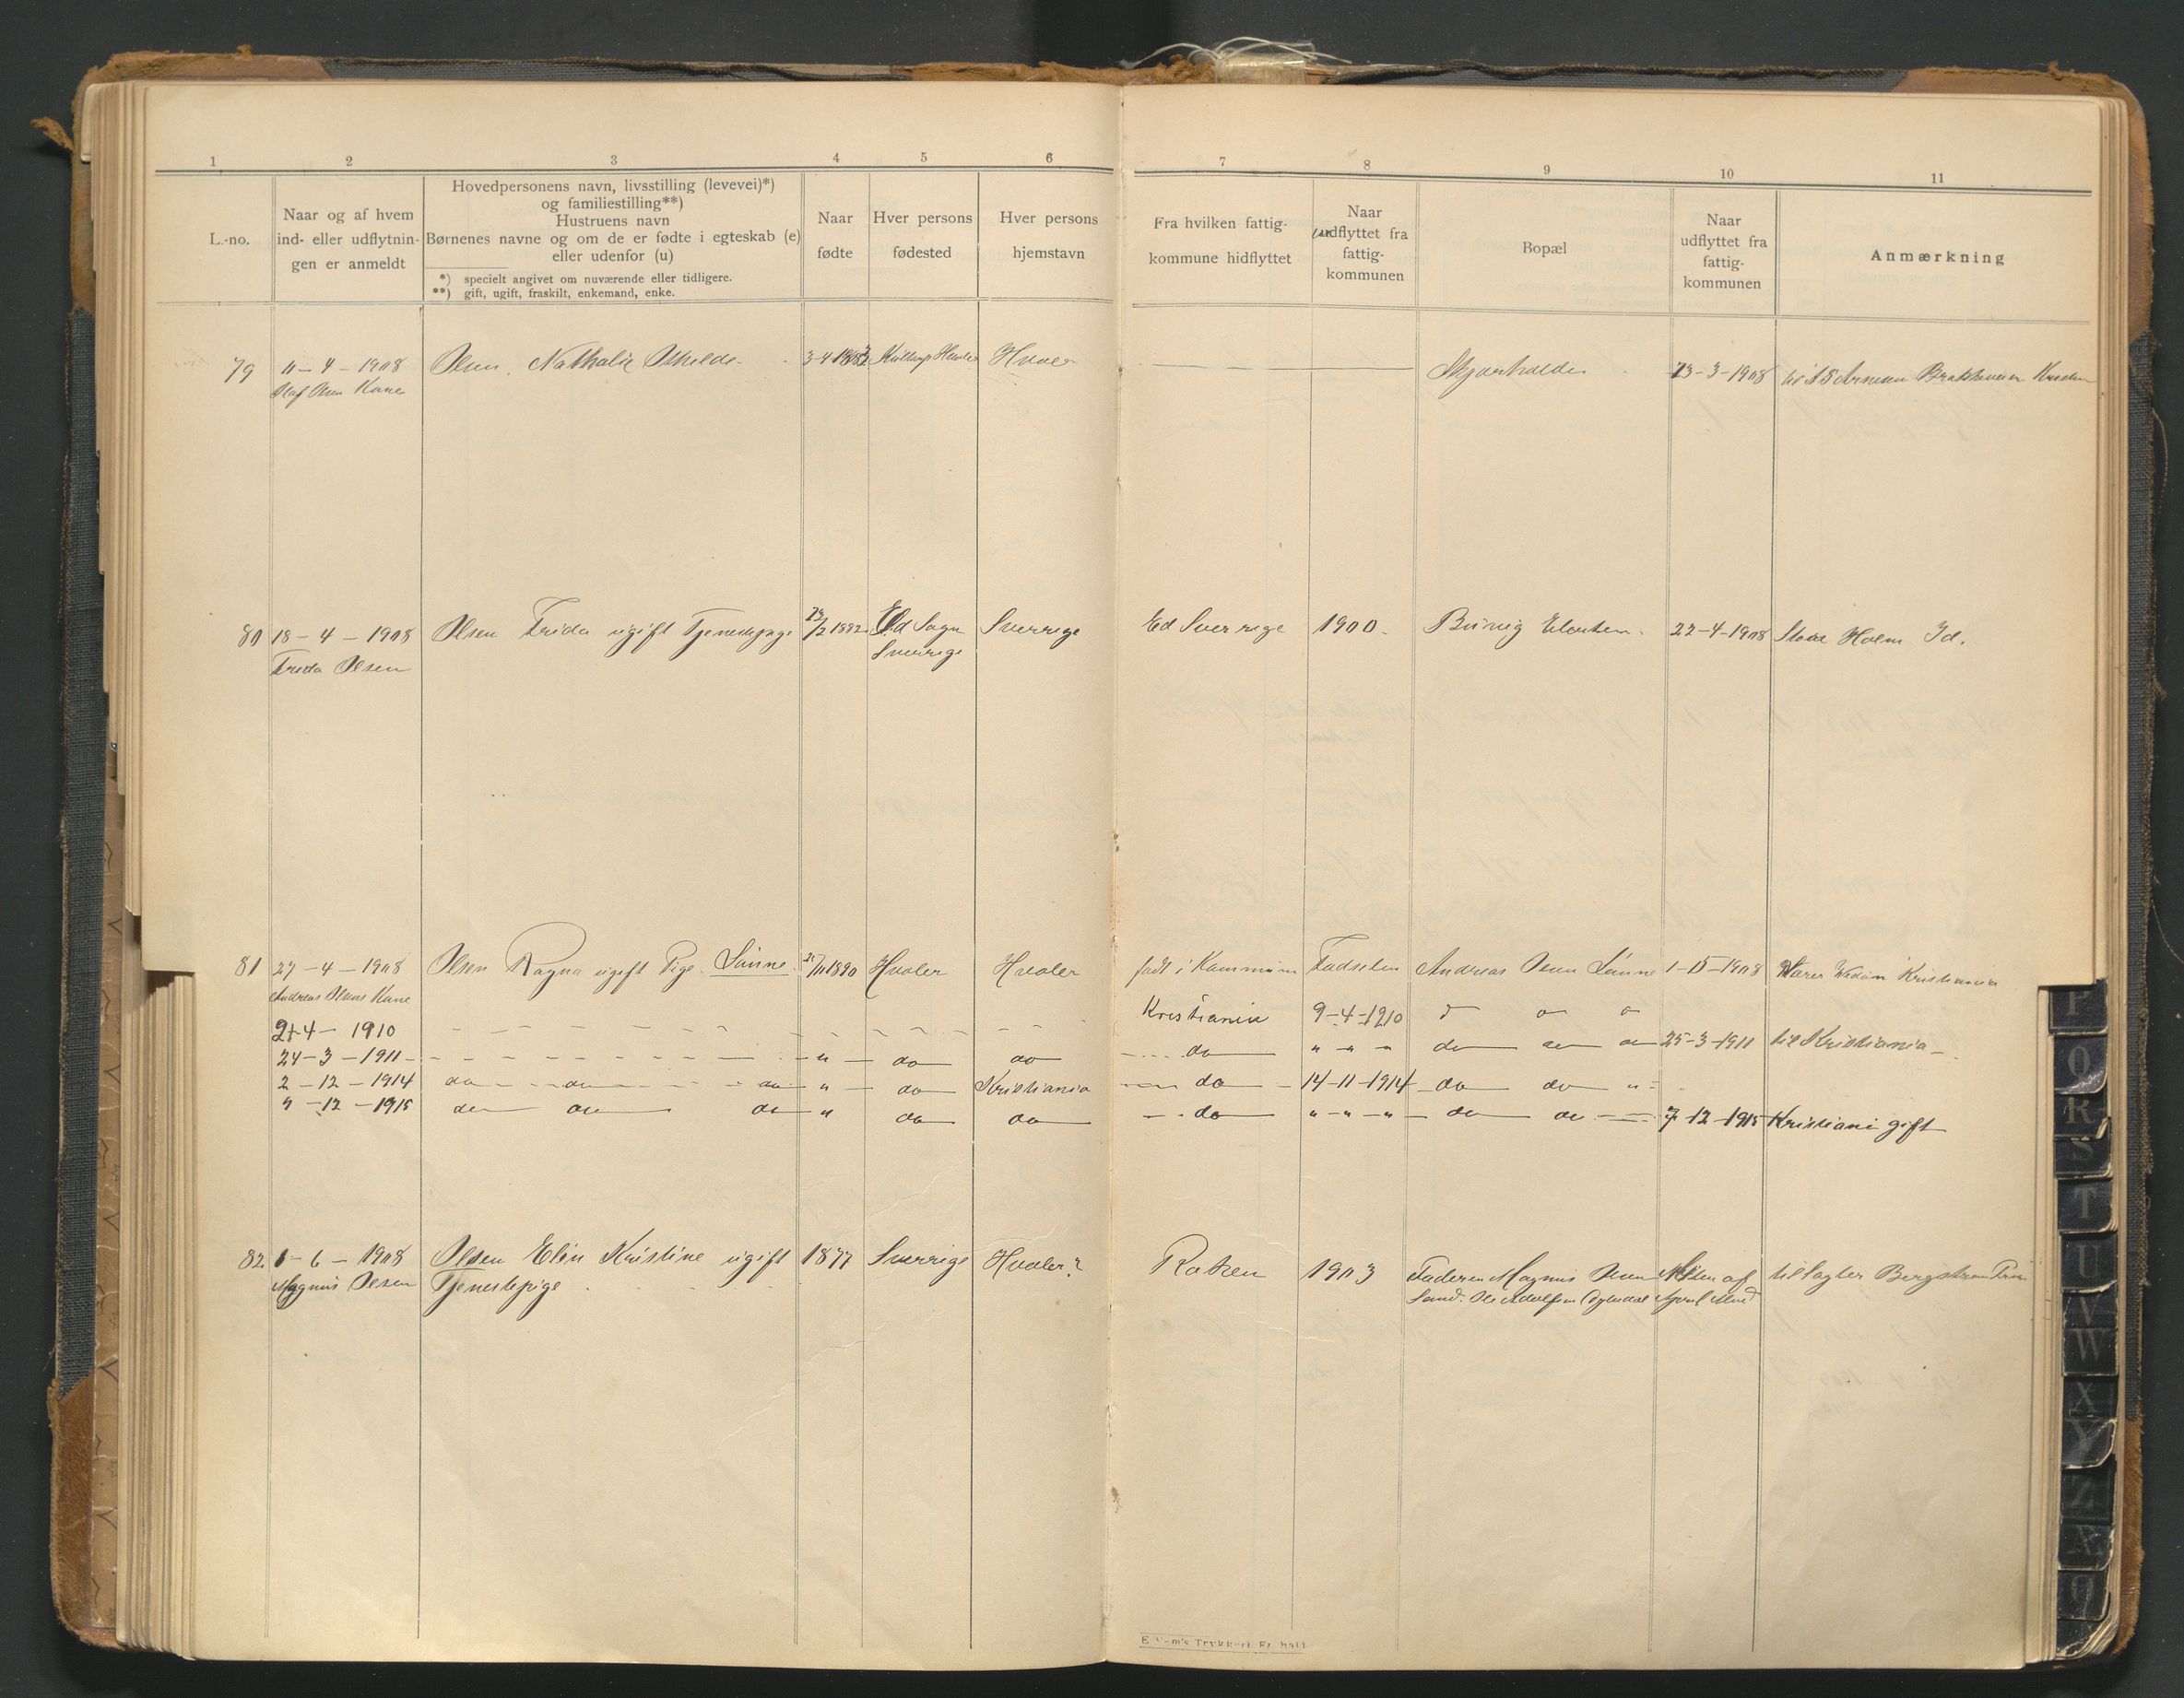 1 2 3 4 5 6 7 8 9 10 11
L.-no.
Naar og af hvem
ind- eller udflytnin-
gen er anmeldt
Hovedpersonens navn, livsstilling (levevei)*)
og familiestilling**)
Hustruens navn
Børnenes navne og om de er fødte i egteskab (e)
eller udenfor (u)
*) specielt angivet om nuværende eller tidligere.
**) gift, ugift, fraskilt, enkemand, enke.
Naar
fødte
Hver persons
fødested
Hver persons
hjemstavn
Fra hvilken fattig-
kommune hidflyttet
Naar
udflyttet fra
fattig-
kommunen
Bopæl
Naar
udflyttet fra
fattig-
kommunen
Anmærkning
79 11-4-1908 Olsen, Nathalie 3-4 Hvaler Skjærhalden 23-3-1908 til
Olaf Olsens Kone
80 18-4-1908 Olsen Frida ugift Tjenestepige 1882 Ed Sogn Sverrige Ed Sverrige 1900. 22-4-1908 Holm Id.
Frida Olsen Sverrige
81 27-4-1908 Olsen Ragna ugift Pige. 1890 Hvaler Hvaler født i Kommunen Fødselen Andreas Olsen 1-5-1908 Kristiania
Andreas Olsens Kone
4-1910 Kristiania 9-4-1910
24-3-1911 " do do do " " " do 25-3-1911 til Kristiania
2-12-1914 do do do " do Kristiania do 14-11-1914 do do "
" -12-1915 do do do " do do do " " " do do 7-12-1915 Kristiani gift
82. 1-6-1908 Olsen Elin Kristine ugift 1877 Sverrige Hvaler? 1903 Faderen Magnus Olsen til
Magnus Olsen Tjenestepige Sand.
E. Trykkeri, Fr.hald
P
Q
R
S
T
U
V
W
X
Y
Z
Æ
Ø